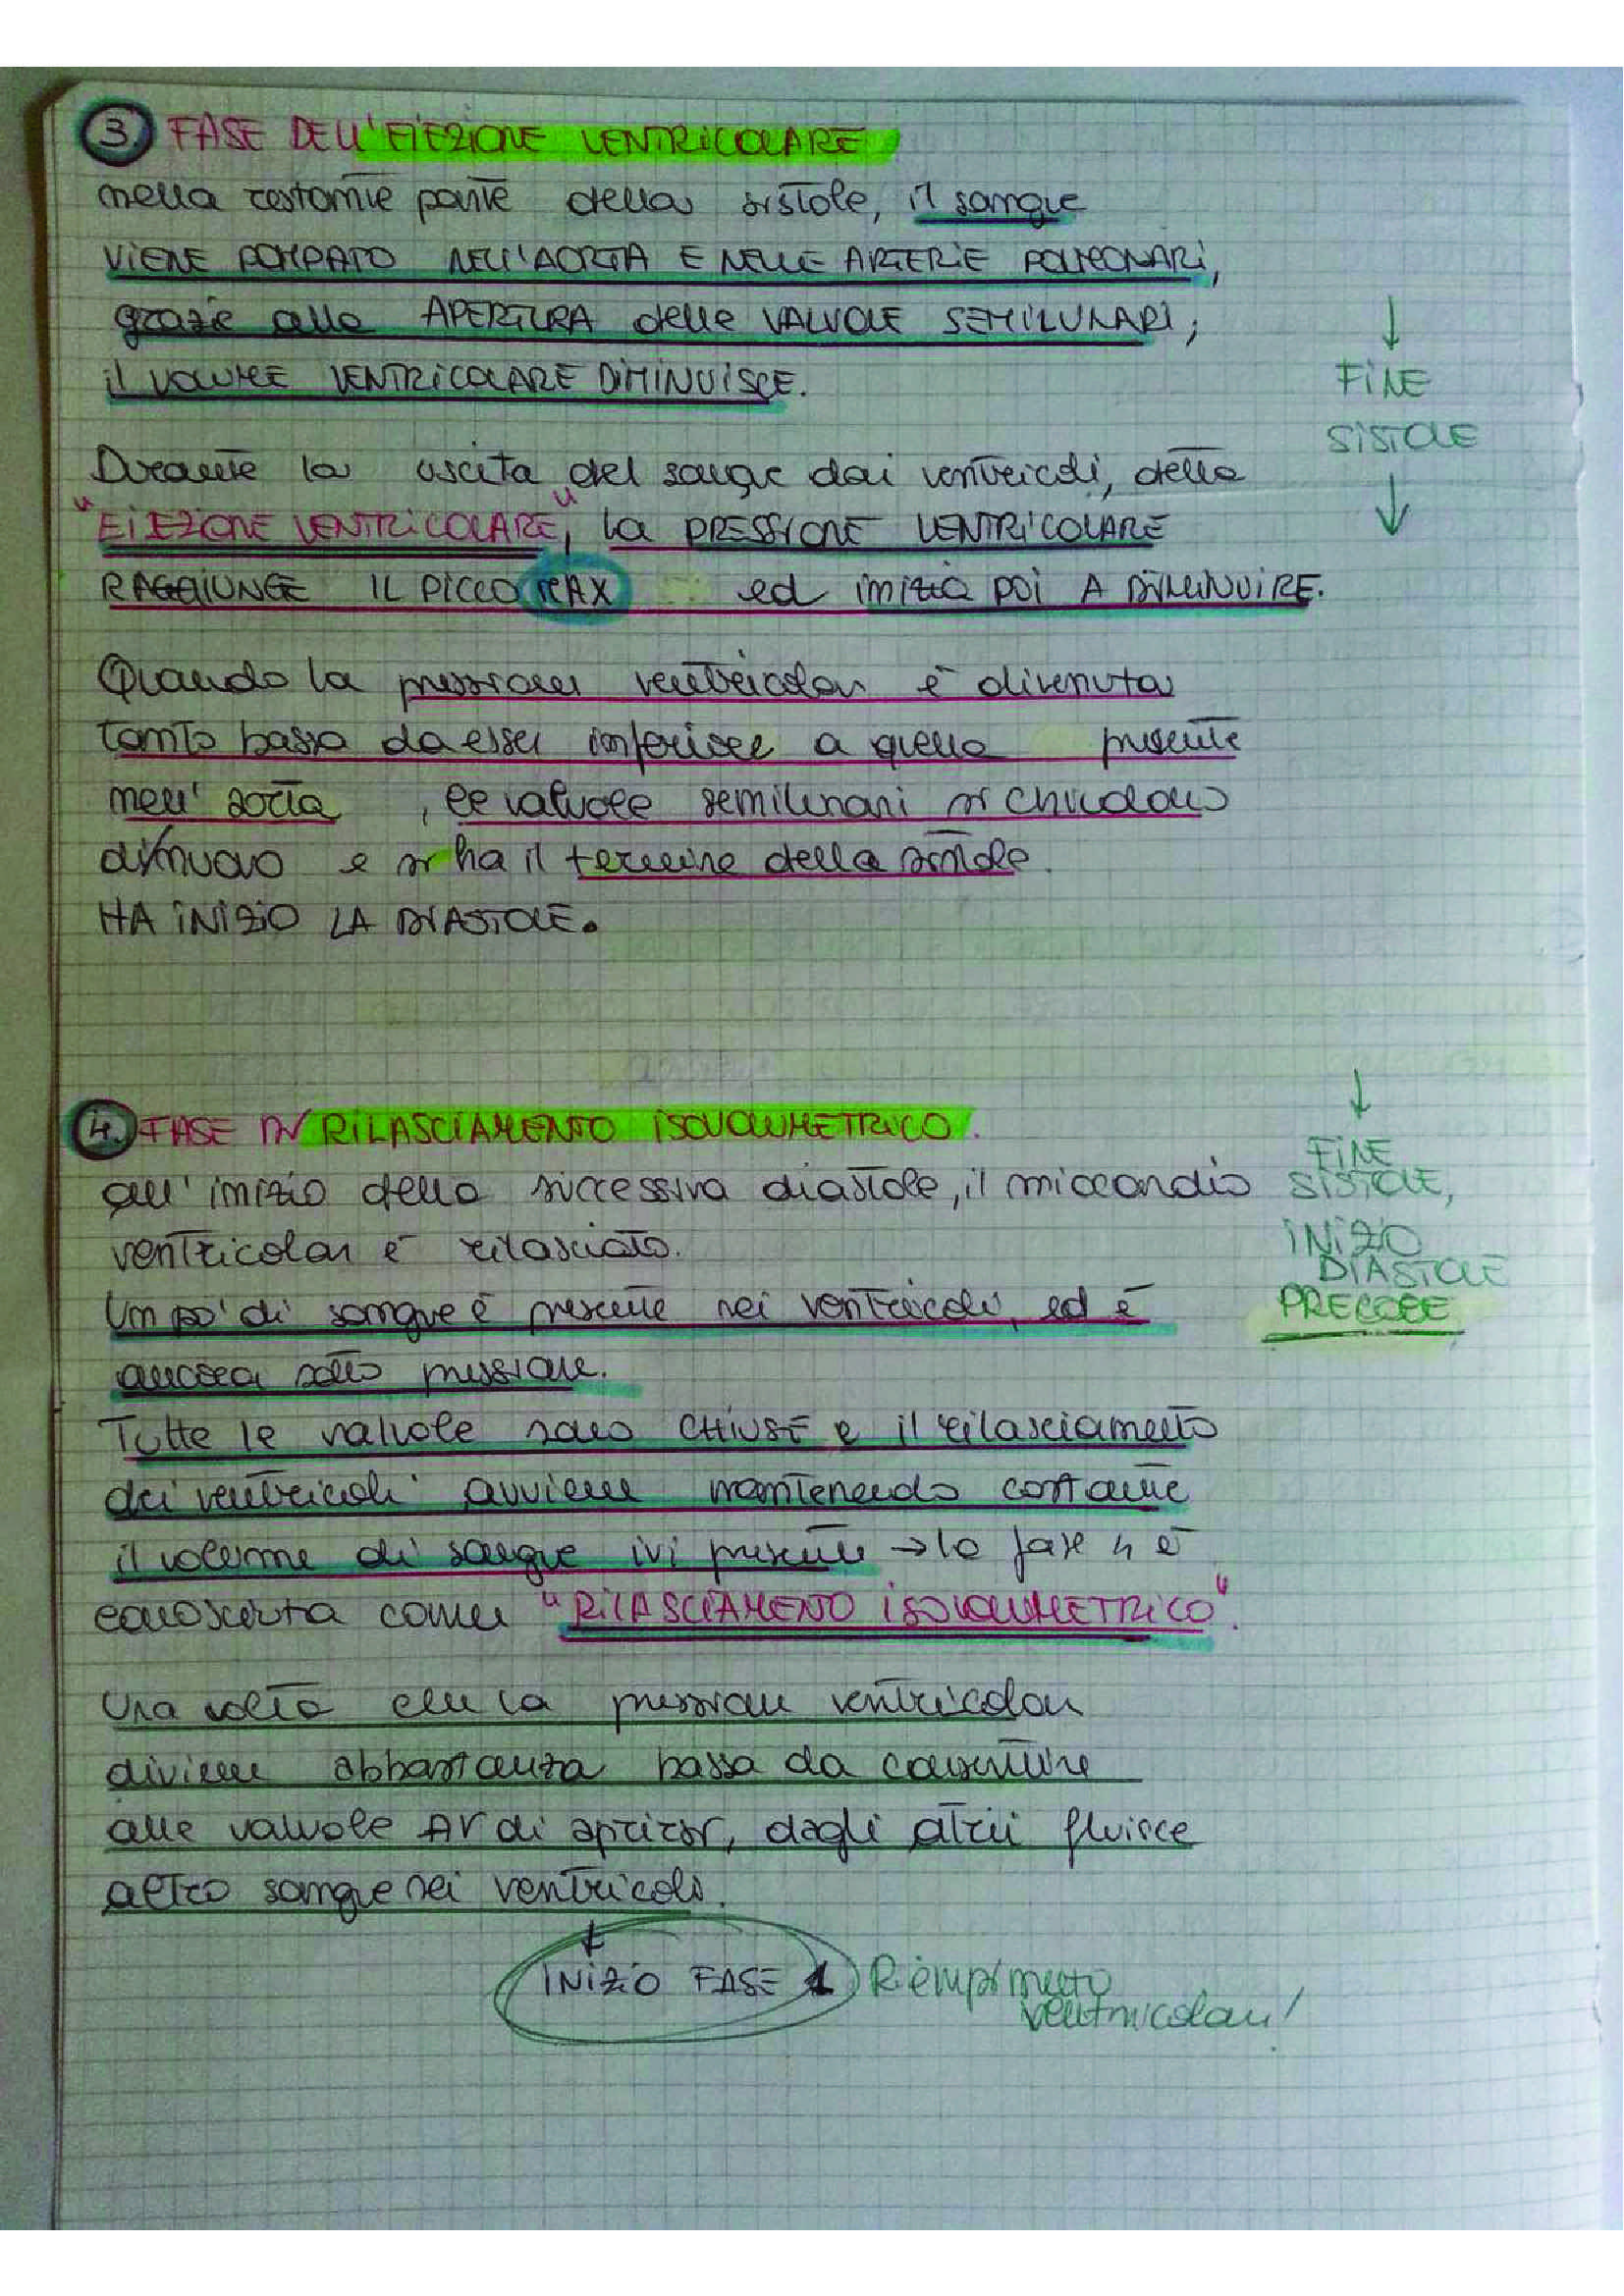 3. FASE DELL'EIEZIONE VENTRICOLARE
nella restante parte della sistole, il sangue
VIENE POMPATO NELL'AORTA E NELLE ARTERIE POLMONARI,
grazie alla APERTURA delle VALVOLE SEMILUNARI;
il VOLUME VENTRICOLARE DIMINUISCE.
↓
FINE
SISTOLE
↓
Durante la uscita del sangue dai ventricoli, detta
"EIEZIONE VENTRICOLARE", la PRESSIONE VENTRICOLARE
RAGGIUNGE IL PICCO MAX ed inizia poi A DIMINUIRE.
Quando la pressione ventricolare è divenuta
tanto bassa da esser inferiore a quella presente
nell'aorta, le valvole semilunari si chiudono
di nuovo e si ha il termine della sistole.
HA INIZIO LA DIASTOLE.
4. FASE DI RILASCIAMENTO ISOVOLUMETRICO.
all'inizio della successiva diastole, il miocardio
ventricolare è rilasciato.
↓
FINE
SISTOLE,
INIZIO
DIASTOLE
PRECOCE
Un po' di sangue è presente nei ventricoli, ed è
ancora sotto pressione.
Tutte le valvole sono CHIUSE e il rilasciamento
dei ventricoli avviene mantenendo costante
il volume di sangue ivi presente → la fase 4 è
conosciuta come "RILASCIAMENTO ISOVOLUMETRICO".
Una volta che la pressione ventricolare
diviene abbastanza bassa da consentire
alle valvole AV di aprirsi, dagli atrii fluisce
altro sangue nei ventricoli.
↓
INIZIO FASE 1 Riempimento
ventricolare!